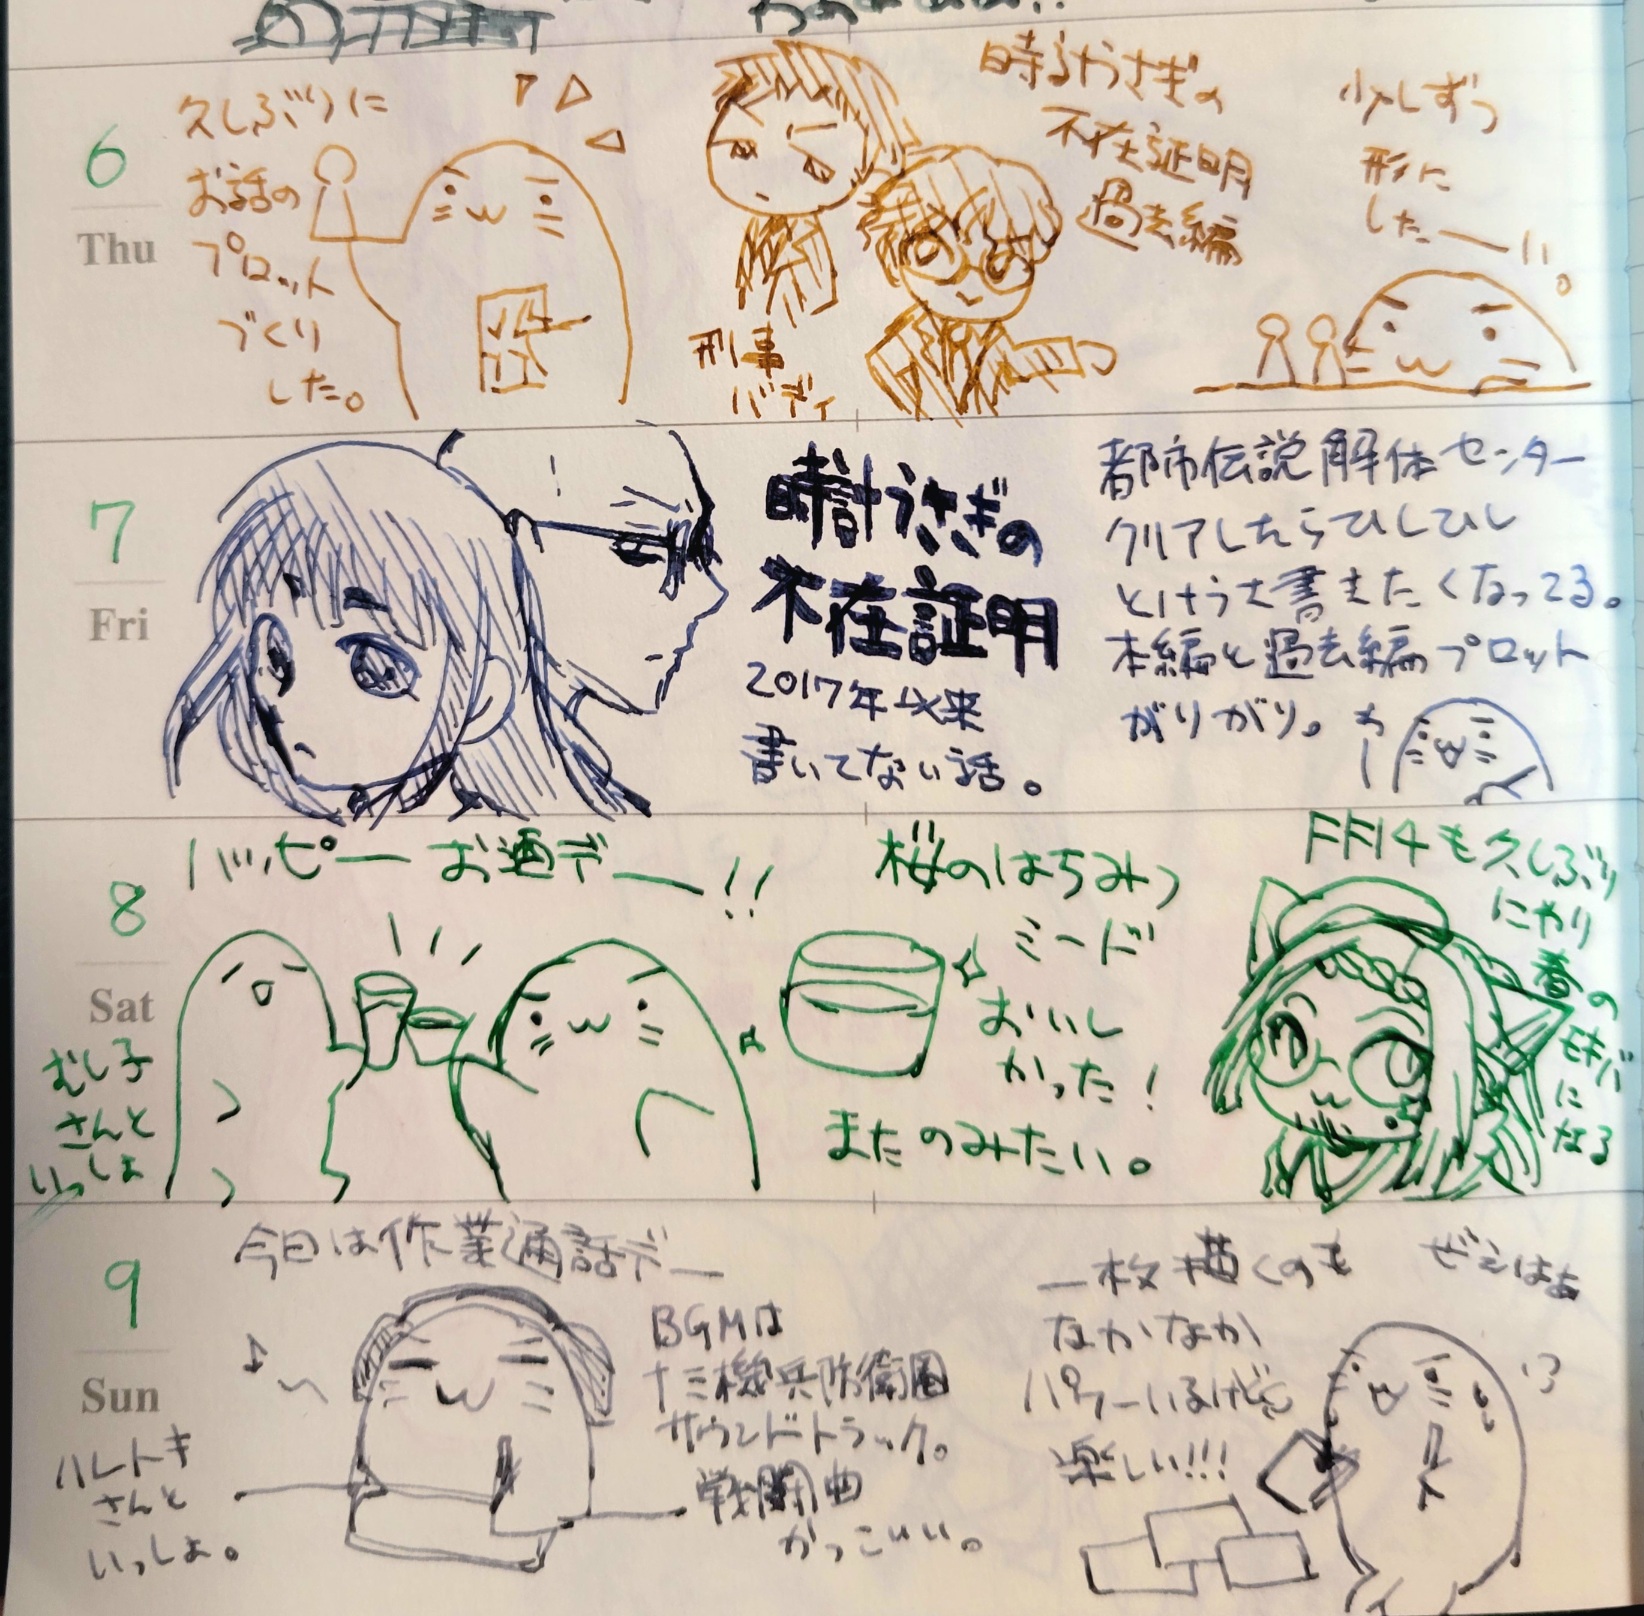 6
Thu
久しぶりに
お話の
プロット
づくり
した。
刑事
バディ
不在証明
過去編
少しずつ
形に
したーい。
7
Fri
時計うさぎの
不在証明
2017年以来
書いてない話。
都市伝説解体センター
クリアしたらひしひし
書きたくなってる。
本編と過去編プロット
がりがり。
8
Sat
むし子
さんと
いっしょ
ハッピーお酒デー!!
桜のはちみつ
ミード
おいし
かった!
またのみたい。
FF14も久しぶり
にやり
春の
になる
9
Sun
ハルトキ
さんと
いっしょ。
今日は作業通話デー
BGMは
十三機兵防衛圏
サウンドトラック。
戦闘曲
かっこいい。
一枚描くのも
なかなか
パワーいるけど
楽しい!!!
ぜぇはぁ